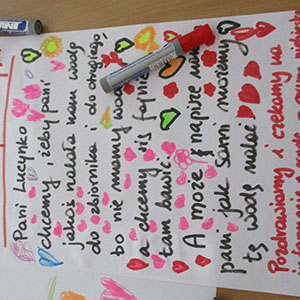 Pani Lucynko
chcemy, żeby pani
już nalała nam wodę
do zbiornika i do drugiego,
bo nie mamy wody
a chcemy się fajnie
tam bawić.
A może napisze nam
pani jak sami możemy
tą wodę nalać
Pozdrawiamy i czekamy na